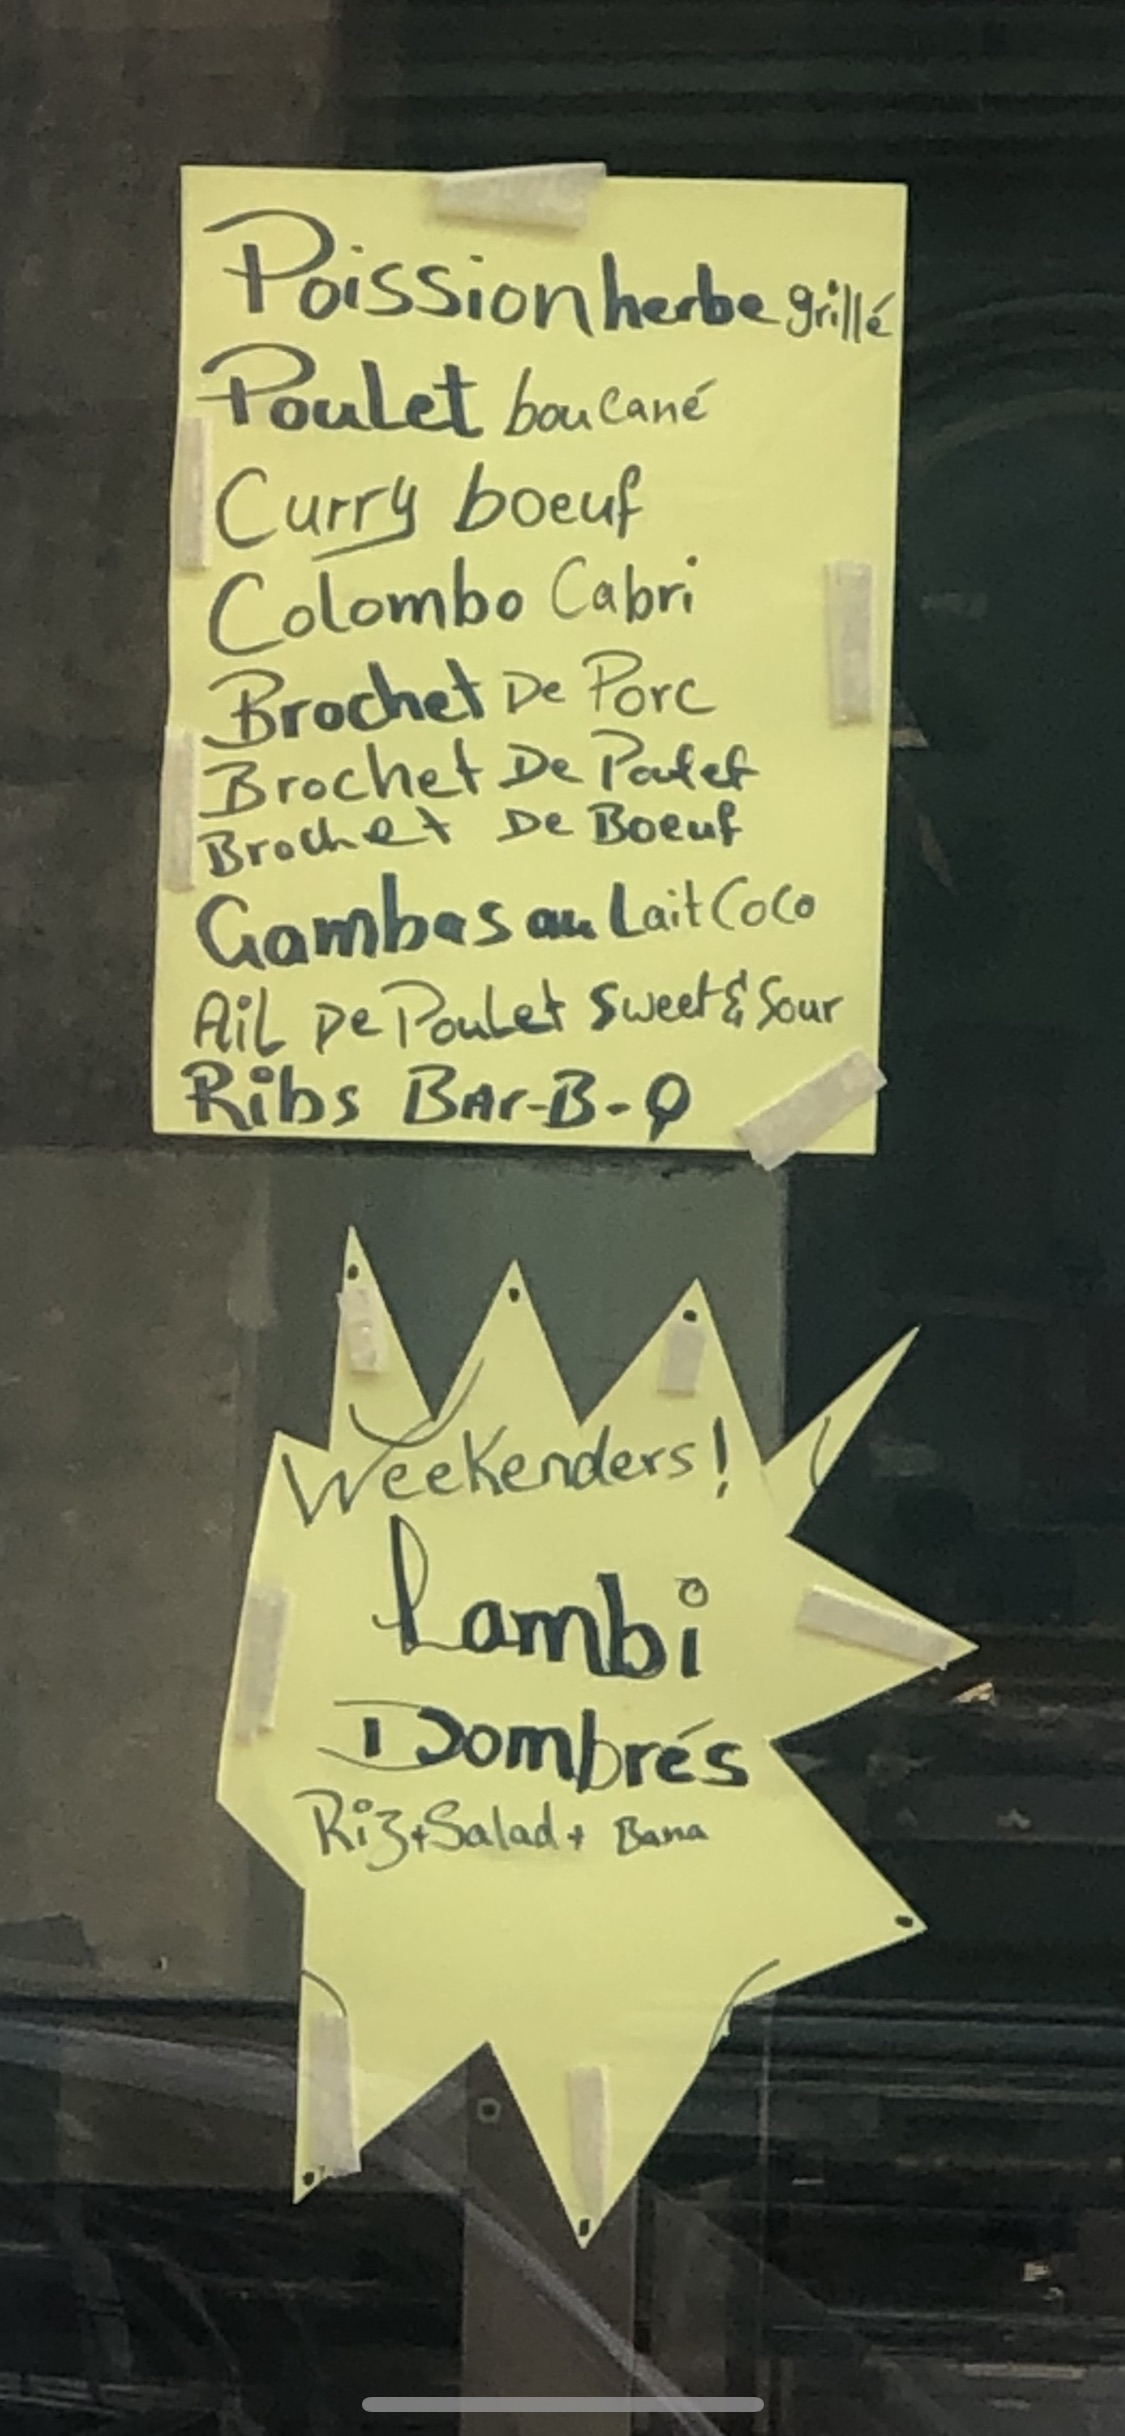 Poission herbe grillé
Poulet boucané
Curry boeuf
Colombo Cabri
Brochet De Porc
Brochet De Poulet
Brochet De Boeuf
Gambas au Lait Coco
AiL De Poulet Sweet & Sour
Ribs BAr-B-Q
Weekenders!
Lambi
Dombrés
Riz+Salad+ Bana